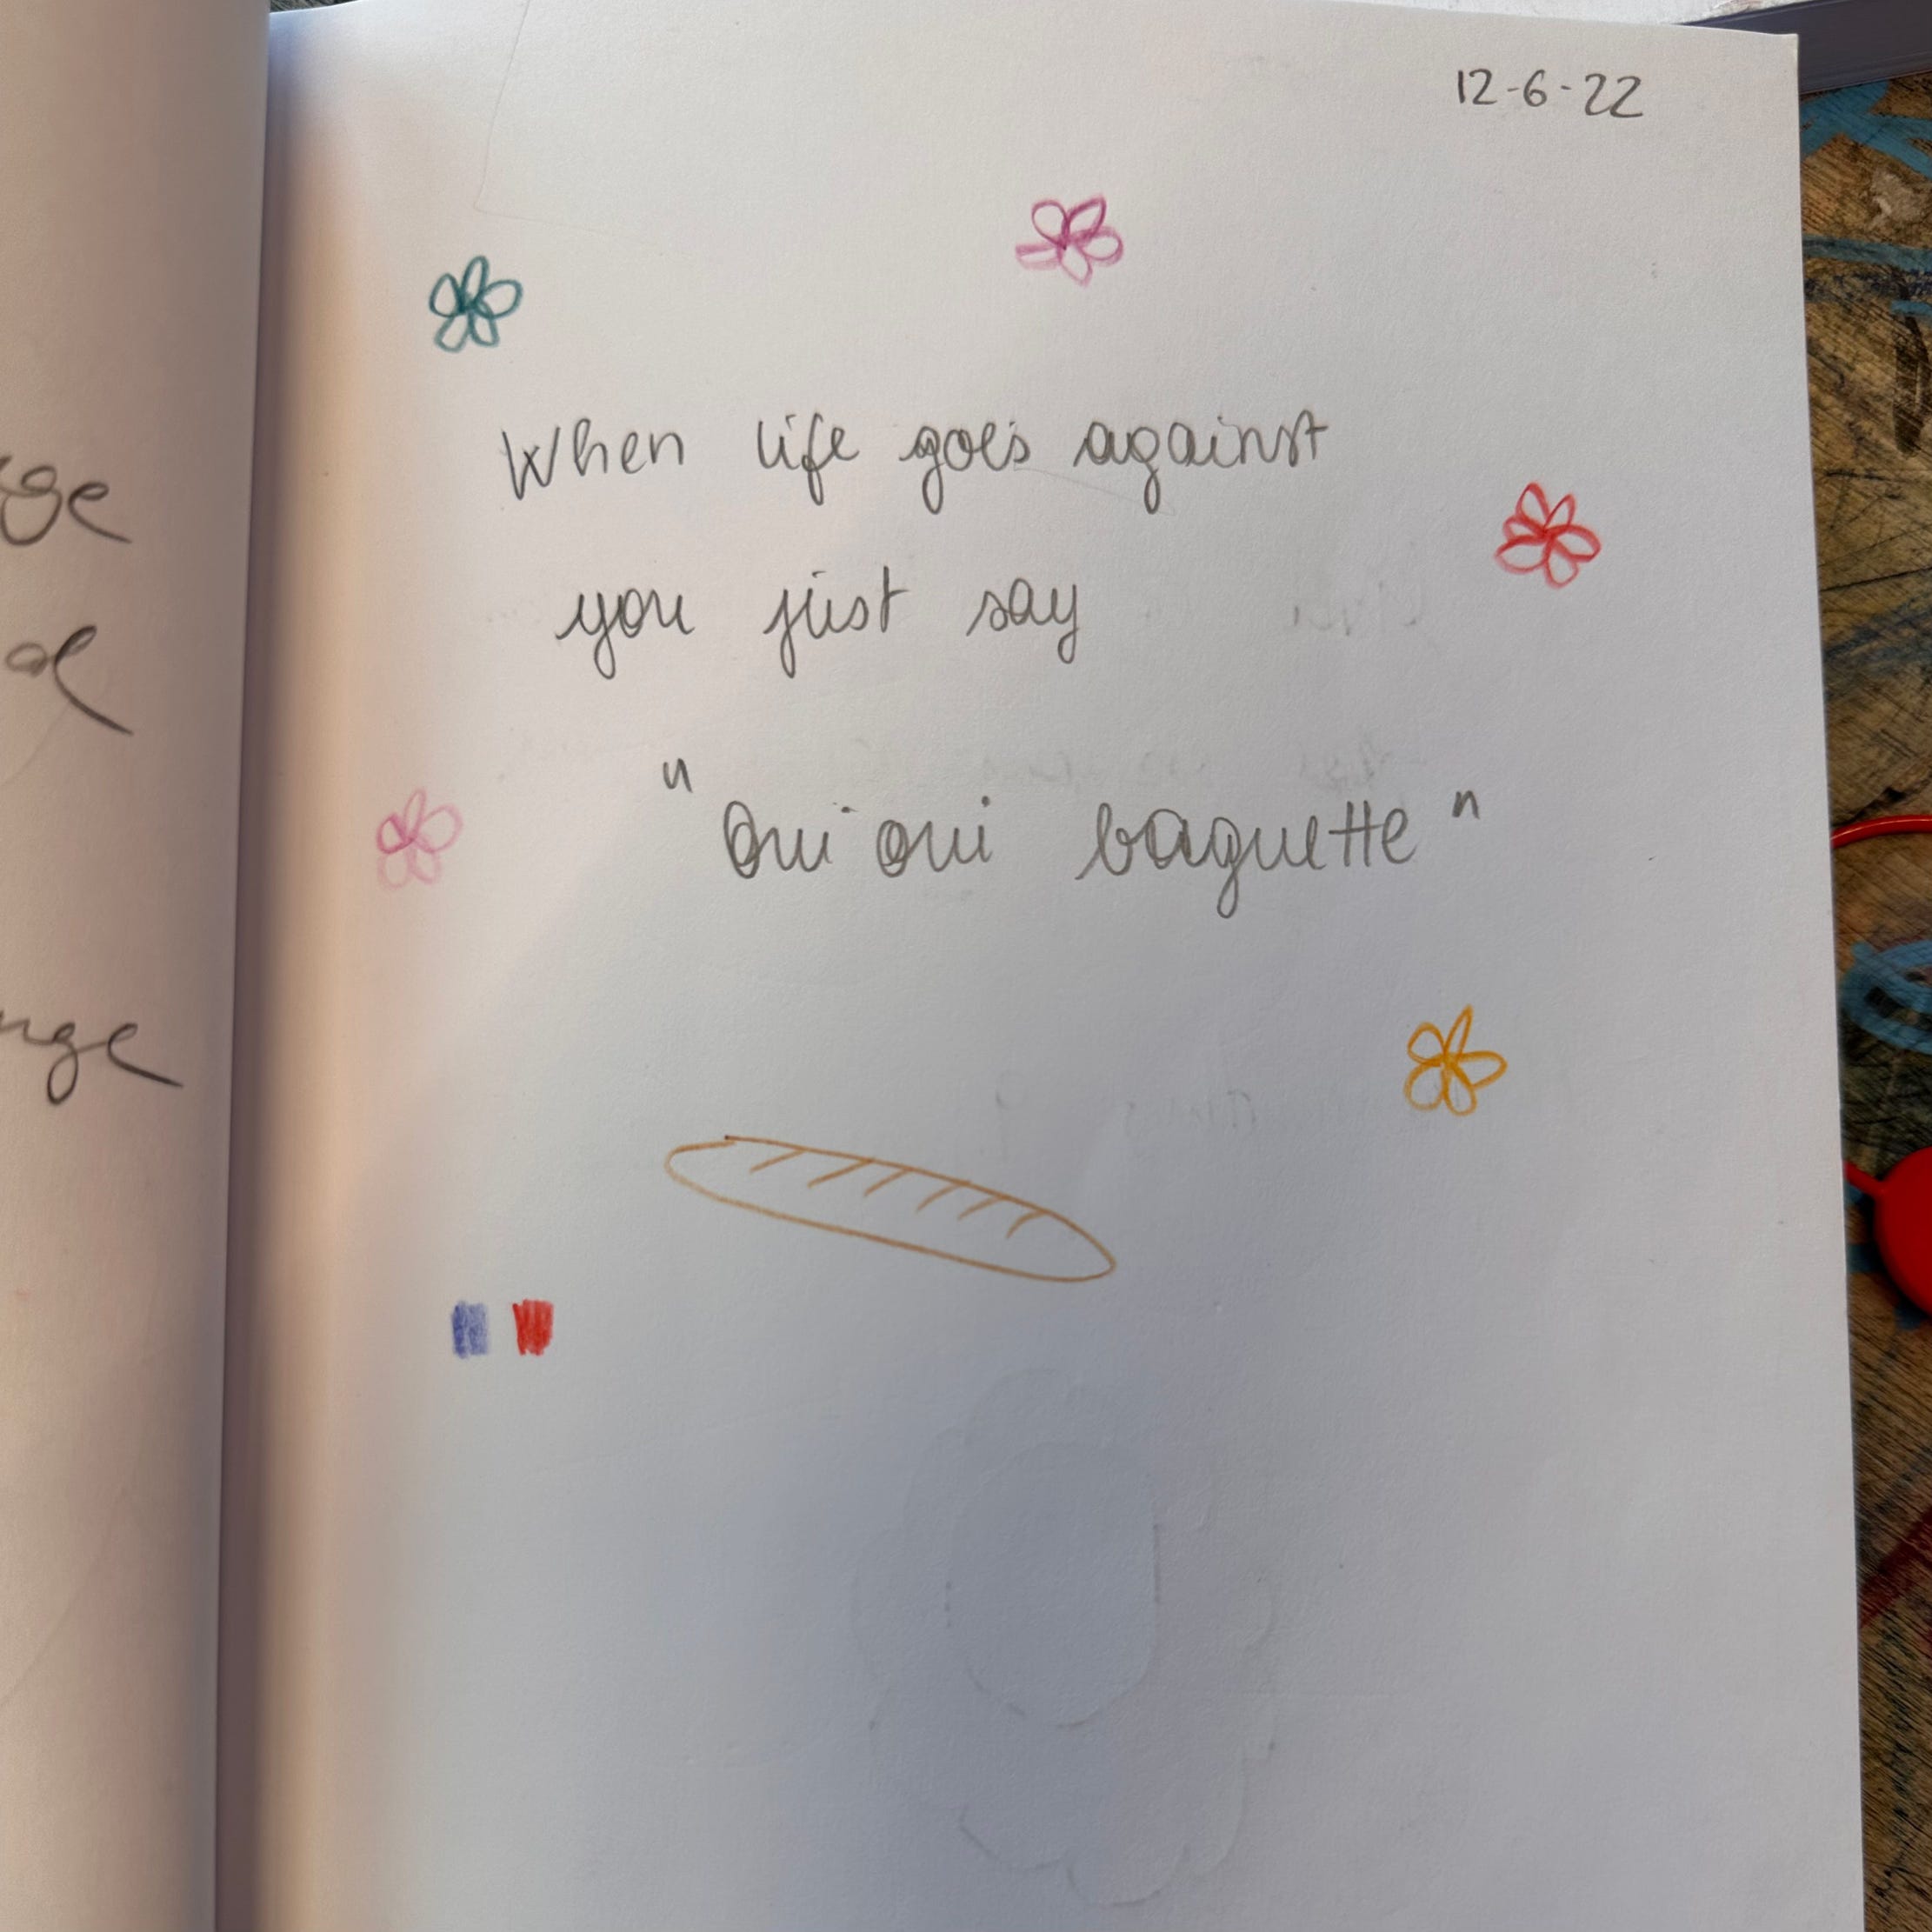 12-6-22
When life goes against
you just say
"Oui oui baguette"